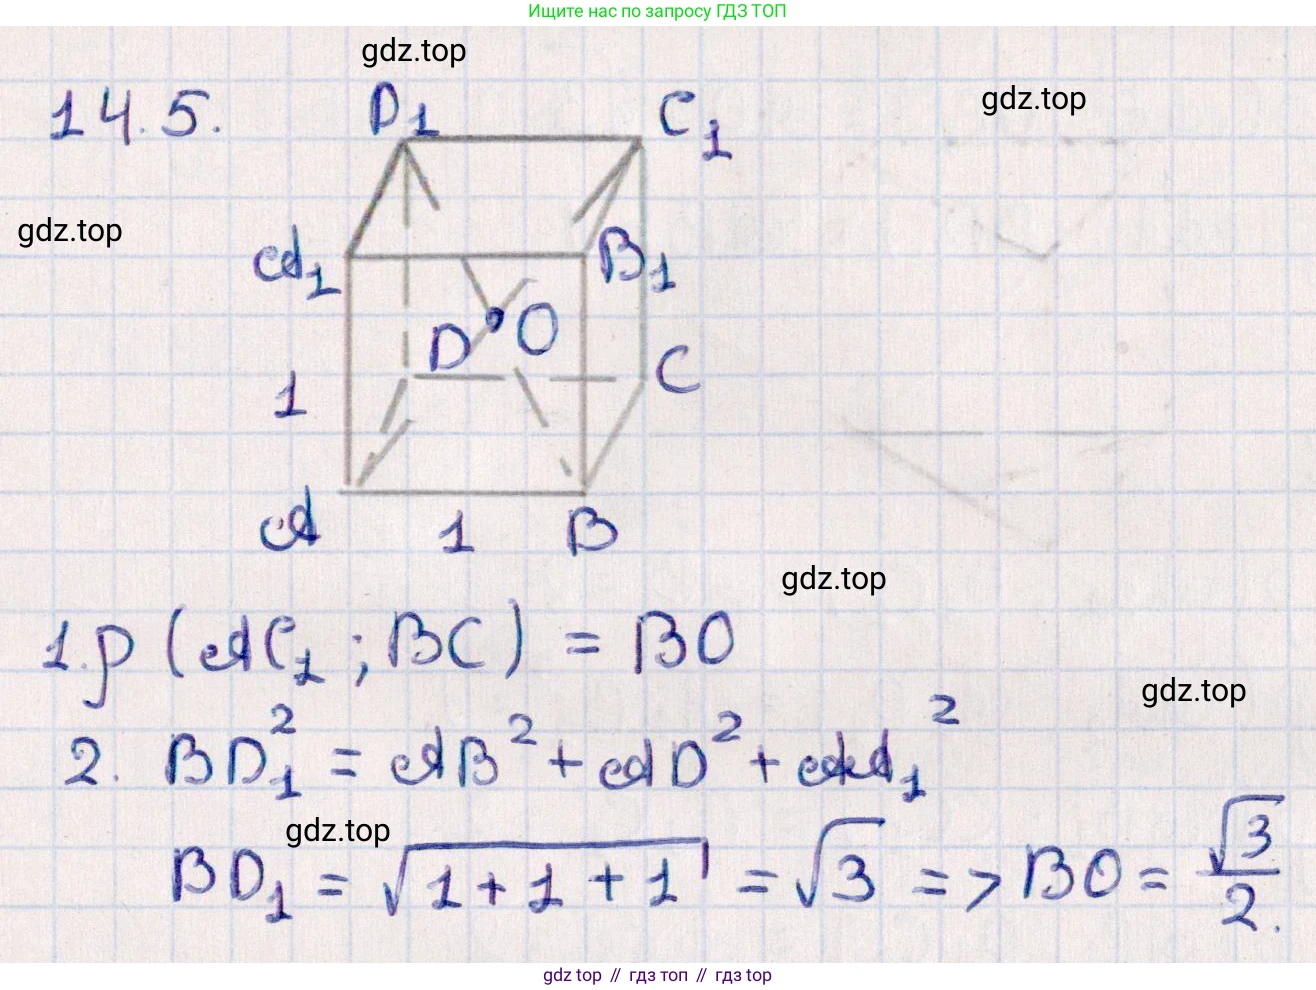 Ищите нас по запросу ГДЗ ТОП
gdz.top
14.5.
D₁
C₁
gdz.top
gdz.top
A₁
B₁
D
O
1
C
A
1
B
gdz.top
1. ρ (AC₁ ; BC) = BO
gdz.top
2. BD₁² = AB² + AD² + AA₁²
gdz.top
BD₁ = √(1 + 1 + 1) = √3 => BO = √3/2.
gdz top // гдз топ // gdz top